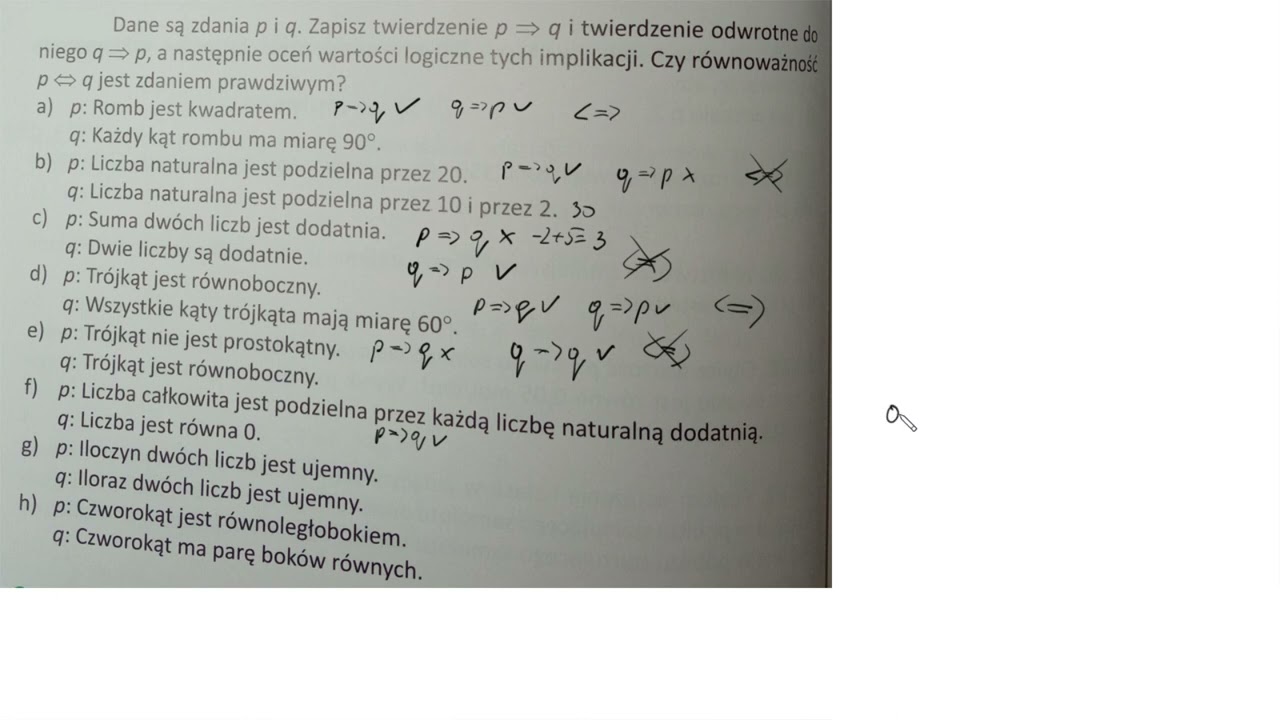 Dane są zdania p i q. Zapisz twierdzenie p ⇒ q i twierdzenie odwrotne do
niego q ⇒ p, a następnie oceń wartości logiczne tych implikacji. Czy równoważność
p ⇔ q jest zdaniem prawdziwym?
a) p: Romb jest kwadratem. p->q ✓ q=>p ✓ <=>
q: Każdy kąt rombu ma miarę 90°.
b) p: Liczba naturalna jest podzielna przez 20. p=>q ✓ q=>p x <=>
q: Liczba naturalna jest podzielna przez 10 i przez 2. 30
c) p: Suma dwóch liczb jest dodatnia. p=>q x -2+5=3
q: Dwie liczby są dodatnie. q=>p ✓ <=>
d) p: Trójkąt jest równoboczny.
q: Wszystkie kąty trójkąta mają miarę 60°. p=>q ✓ q=>p ✓ <=>
e) p: Trójkąt nie jest prostokątny. p->q x q->q ✓ <=>
q: Trójkąt jest równoboczny.
f) p: Liczba całkowita jest podzielna przez każdą liczbę naturalną dodatnią.
q: Liczba jest równa 0. p=>q ✓
g) p: Iloczyn dwóch liczb jest ujemny.
q: Iloraz dwóch liczb jest ujemny.
h) p: Czworokąt jest równoległobokiem.
q: Czworokąt ma parę boków równych.